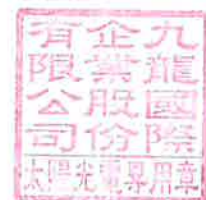 九龍國際
企業股份
有限公司
太陽光電專用章